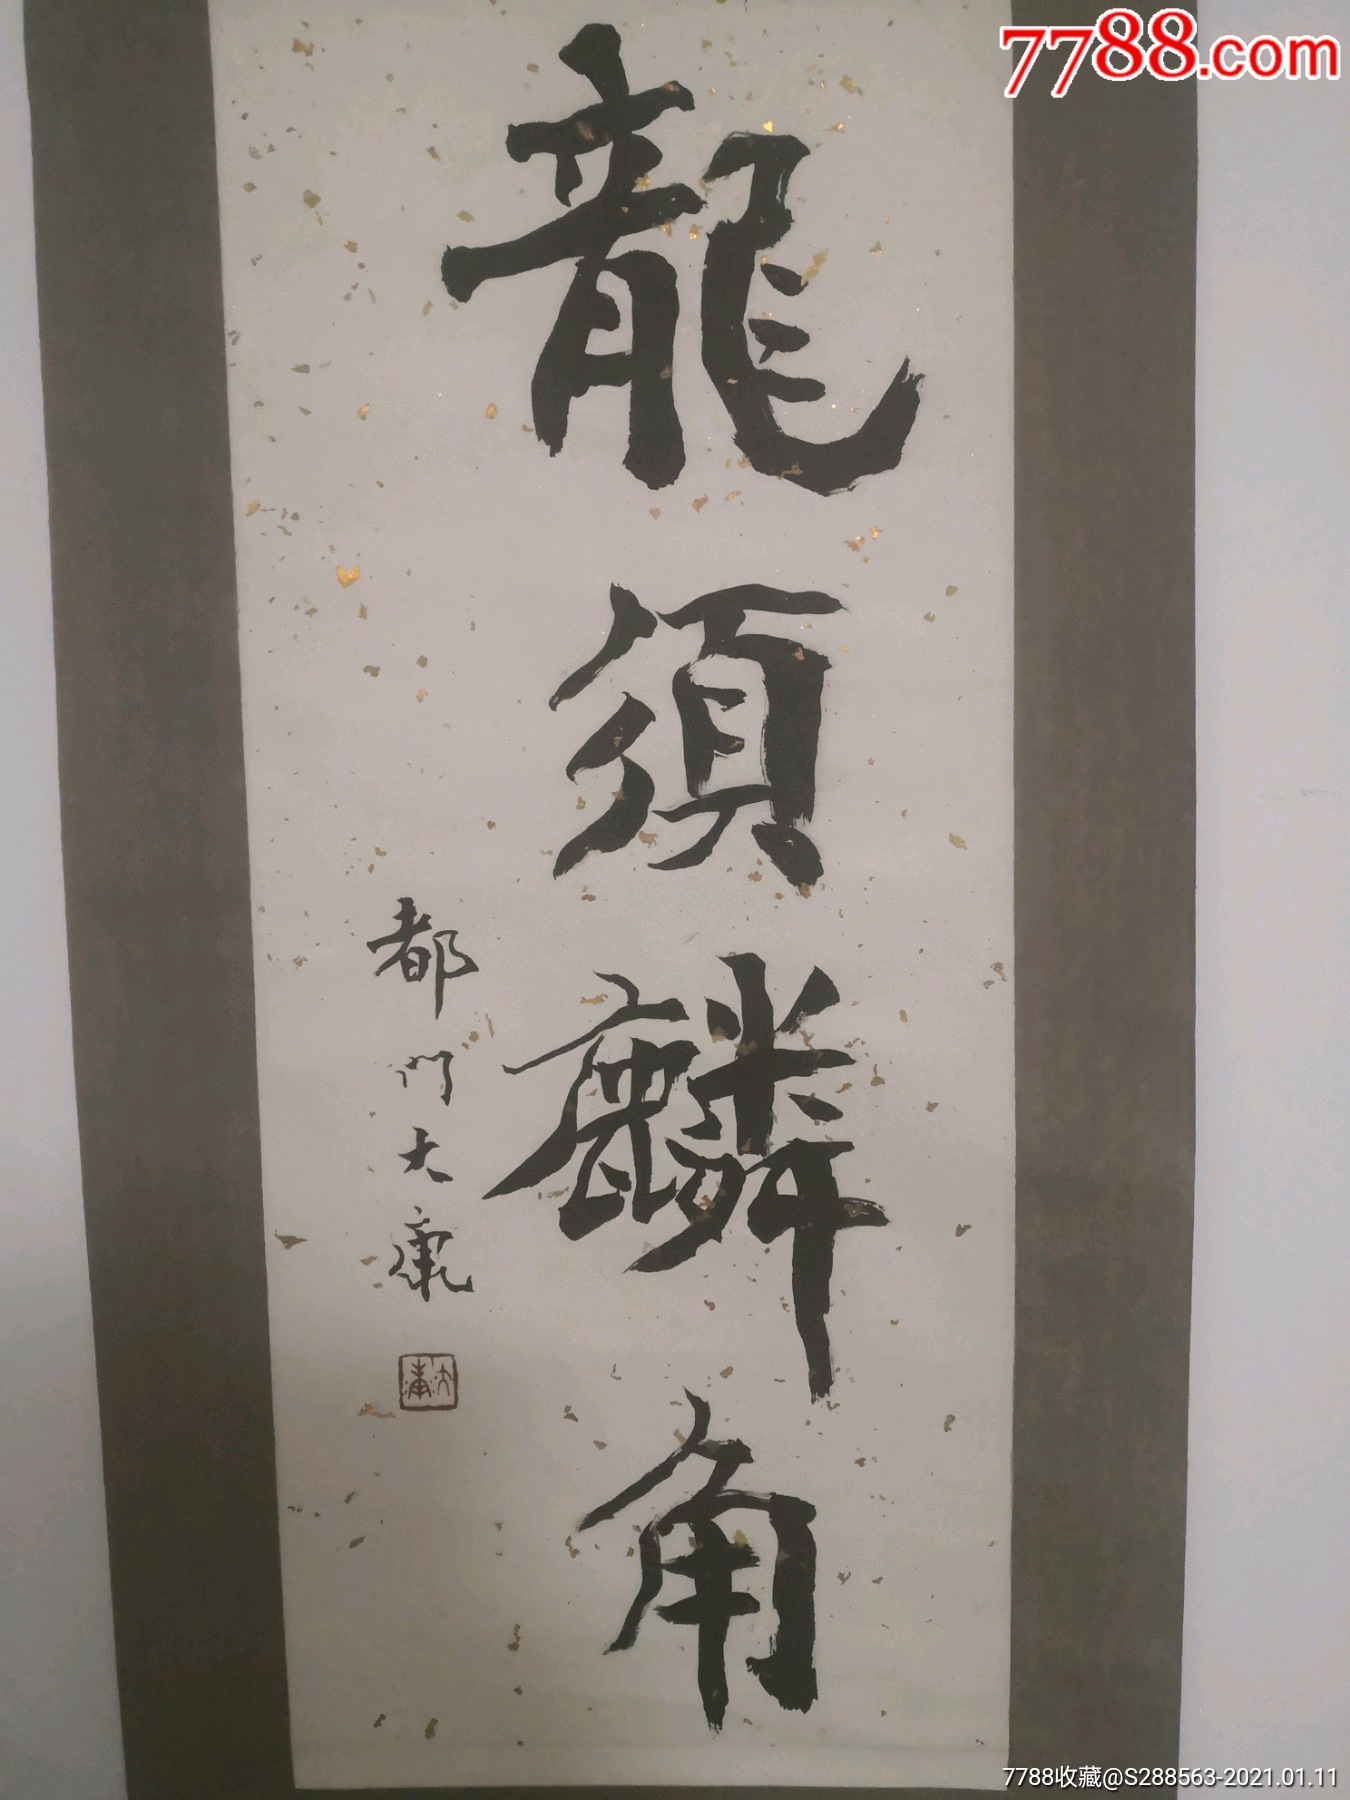 7788.com
龍須麟角
都门大康
7788收藏@S288563-2021.01.11